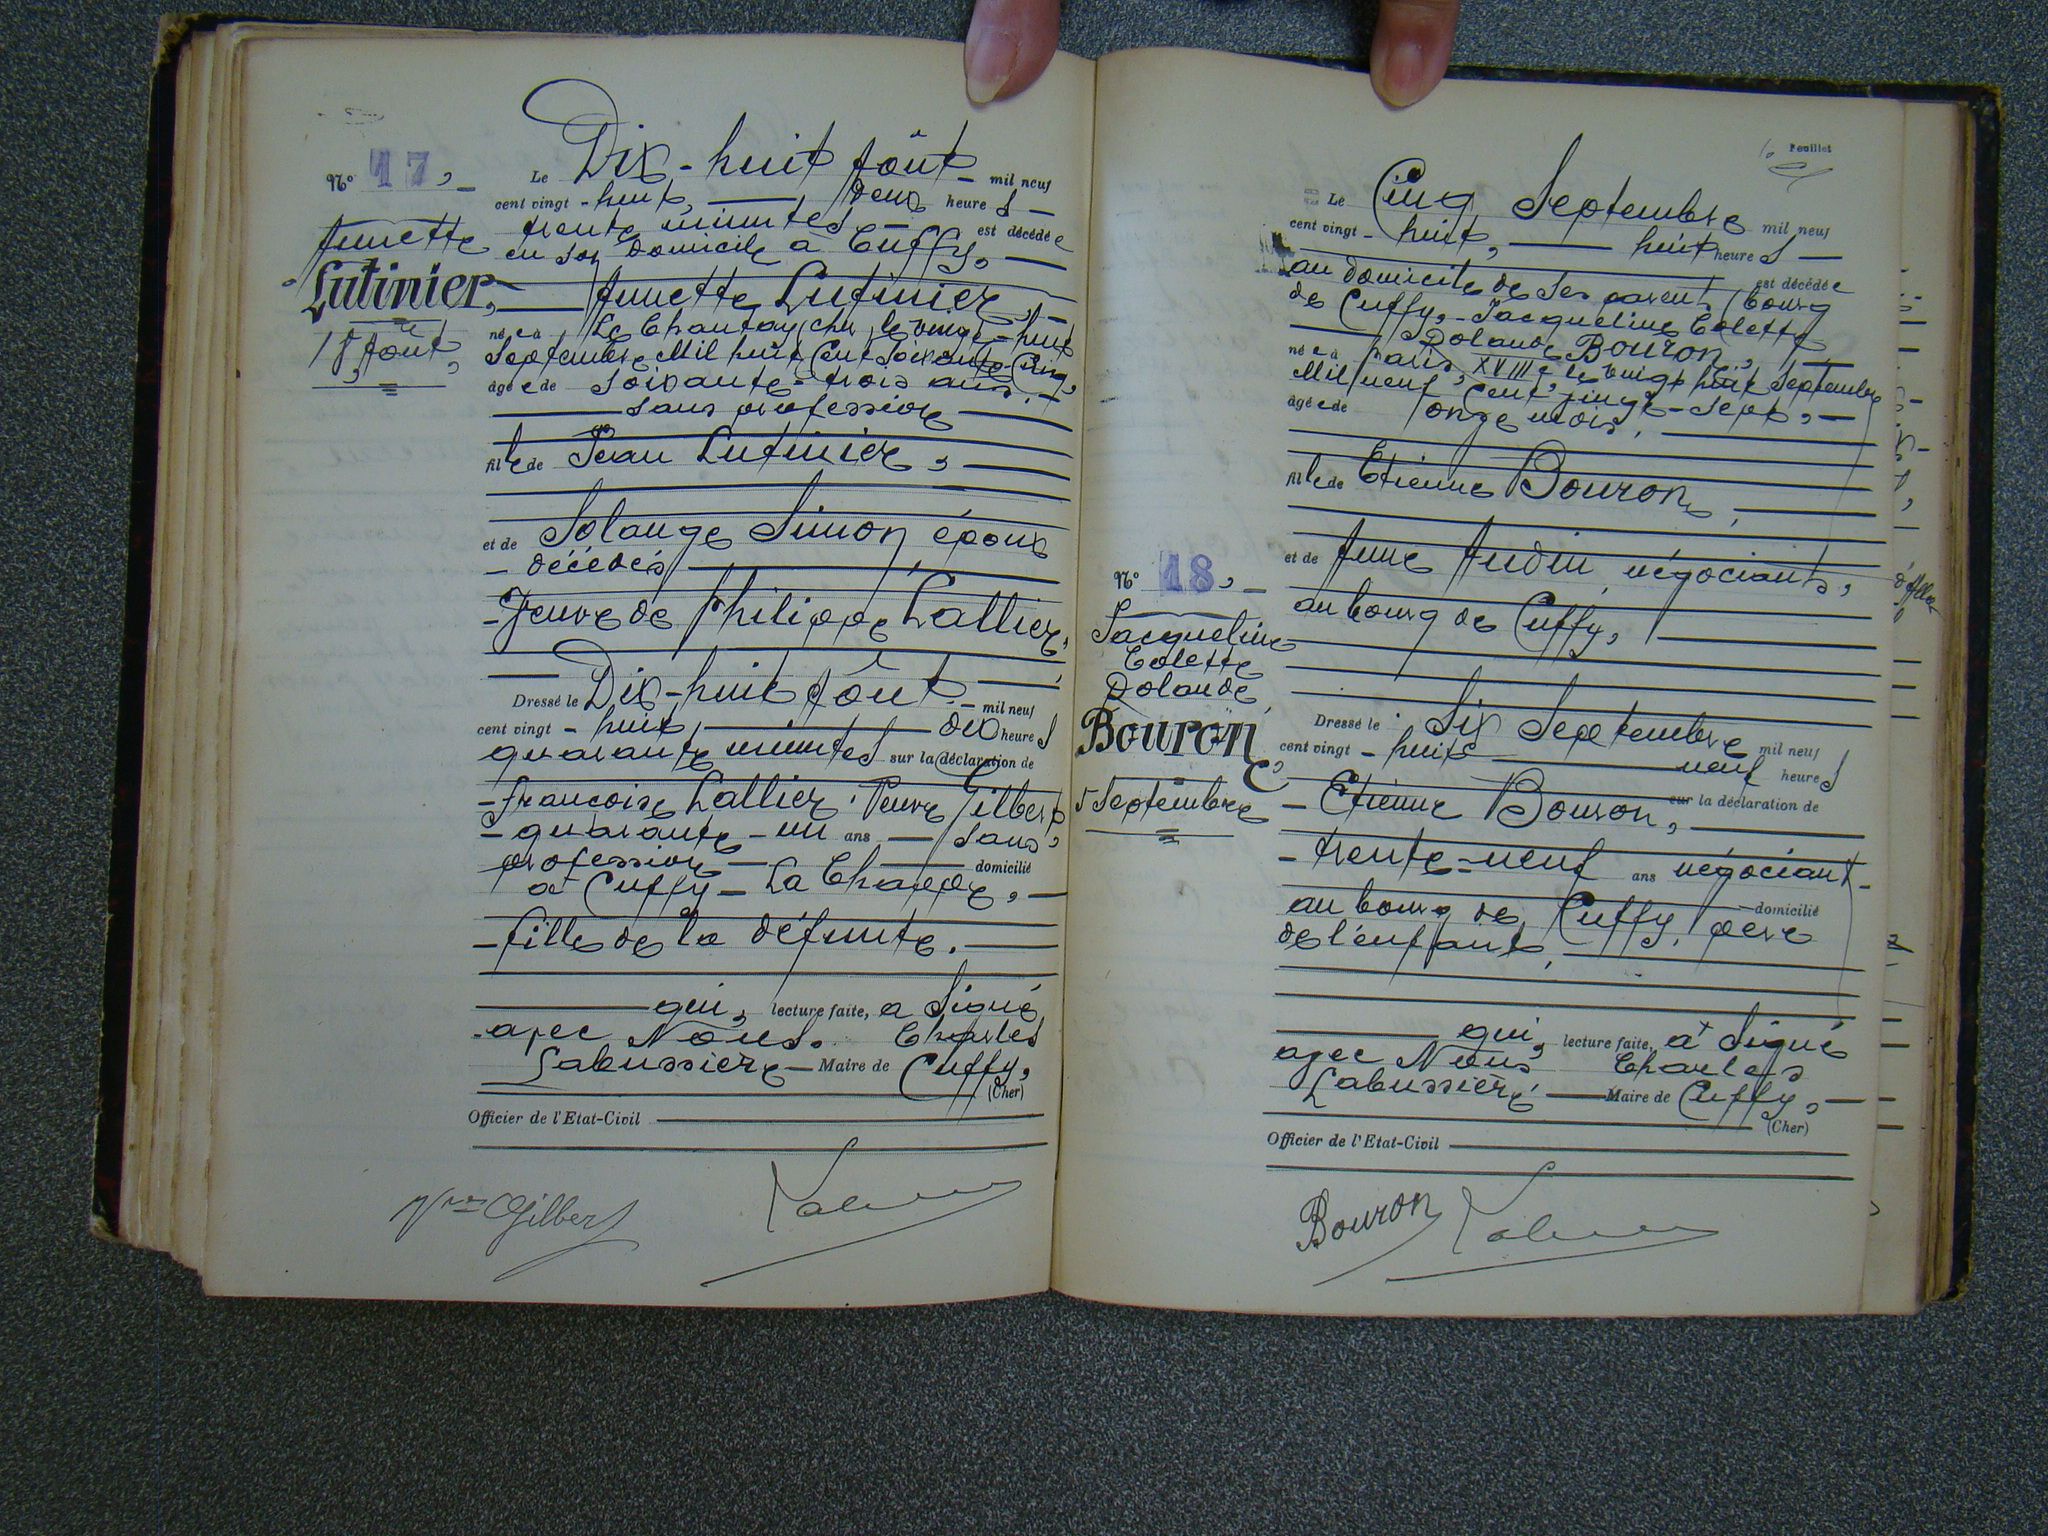 N° 17, -
Annette
Lutinier,
18 Août,
Le Dix-huit Août - mil neuf
cent vingt - huit, deux heure s -
trente minutes - est décédé e
en son domicile à Cuffy,
Annette Lutinier, -
né e à Le Chautay (Cher) le vingt-huit
Septembre Mil huit Cent Soixante-Cinq,
âgé e de soixante-trois ans, -
sans profession
fil le de Jean Lutinier,
et de Solange Simon, époux
- décédés
- Veuve de Philippe Lallier,
Dressé le Dix-huit Août - mil neuf
cent vingt - huit, dix heure s
quarante minutes sur la déclaration de
- Françoise Lallier, Veuve Gilbert,
- quarante-un ans - sans
profession - domicilié
à Cuffy - La Chappe, -
- fille de la défunte.
qui, lecture faite, a signé
- avec Nous. Charles
Labussière - Maire de Cuffy,
(Cher)
Officier de l'Etat-Civil
Vve Gilbert
Feuillet
Le Cinq Septembre mil neuf
cent vingt - huit, huit heure s -
au domicile de ses parents (bourg est décédé e
de Cuffy, - Jacqueline Colette
Yolande Bouron,
né e à Paris, XVIII e le vingt huit Septembre
Mil neuf Cent vingt-sept, -
âgé e de onze mois,
fil le de Etienne Bouron,
N° 18, -
Jacqueline
Colette
Yolande
Bouron
5 Septembre
et de Anne Audin, négociants,
au bourg de Cuffy,
Dressé le Six Septembre mil neuf
cent vingt - huit neuf heure s
- Etienne Bouron, sur la déclaration de
- trente-neuf ans négociant -
au bourg de Cuffy, père domicilié
de l'enfant,
qui, lecture faite, a signé
avec Nous Charles
Labussière, Maire de Cuffy, -
(Cher)
Officier de l'Etat-Civil
Bouron